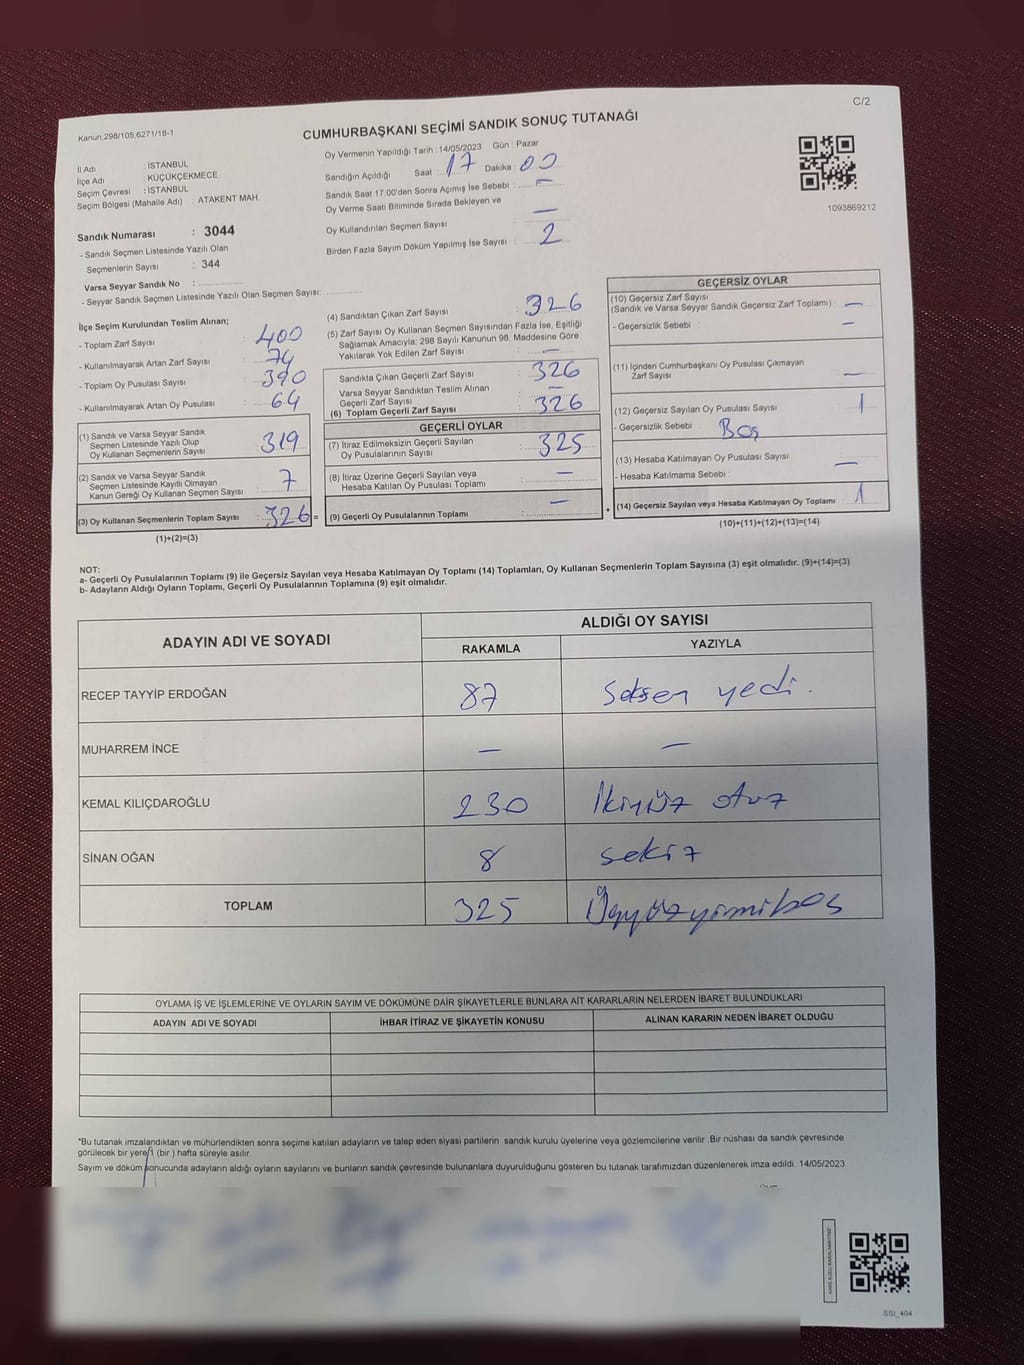 C/2
Kanun:298/105,6271/18-1
CUMHURBAŞKANI SEÇİMİ SANDIK SONUÇ TUTANAĞI
İl Adı : İSTANBUL
İlçe Adı : KÜÇÜKÇEKMECE
Seçim Çevresi : İSTANBUL
Seçim Bölgesi (Mahalle Adı) : ATAKENT MAH.
Sandık Numarası : 3044
- Sandık Seçmen Listesinde Yazılı Olan
Seçmenlerin Sayısı : 344
Varsa Seyyar Sandık No :
- Seyyar Sandık Seçmen Listesinde Yazılı Olan Seçmen Sayısı:
Oy Vermenin Yapıldığı Tarih : 14/05/2023 Gün : Pazar
Sandığın Açıldığı Saat : 17 Dakika : 00
Sandık Saat 17:00'den Sonra Açımış İse Sebebi : —
Oy Verme Saati Bitiminde Sırada Bekleyen ve
Oy Kullandırılan Seçmen Sayısı : —
Birden Fazla Sayım Döküm Yapılmış İse Sayısı : 2
1093869212
İlçe Seçim Kurulundan Teslim Alınan;
- Toplam Zarf Sayısı : 400
- Kullanılmayarak Artan Zarf Sayısı : 74
- Toplam Oy Pusulası Sayısı : 390
- Kullanılmayarak Artan Oy Pusulası : 64
(1) Sandık ve Varsa Seyyar Sandık
Seçmen Listesinde Yazılı Olup
Oy Kullanan Seçmenlerin Sayısı : 319
(2) Sandık ve Varsa Seyyar Sandık
Seçmen Listesinde Kayıtlı Olmayan
Kanun Gereği Oy Kullanan Seçmen Sayısı : 7
(3) Oy Kullanan Seçmenlerin Toplam Sayısı : 326 =
(1)+(2)=(3)
(4) Sandıktan Çıkan Zarf Sayısı : 326
(5) Zarf Sayısı Oy Kullanan Seçmen Sayısından Fazla İse, Eşitliği
Sağlamak Amacıyla; 298 Sayılı Kanunun 98. Maddesine Göre
Yakılarak Yok Edilen Zarf Sayısı : —
Sandıkta Çıkan Geçerli Zarf Sayısı : 326
Varsa Seyyar Sandıktan Teslim Alınan
Geçerli Zarf Sayısı : —
(6) Toplam Geçerli Zarf Sayısı : 326
GEÇERLİ OYLAR
(7) İtiraz Edilmeksizin Geçerli Sayılan
Oy Pusulalarının Sayısı : 325
(8) İtiraz Üzerine Geçerli Sayılan veya
Hesaba Katılan Oy Pusulası Toplamı : —
(9) Geçerli Oy Pusulalarının Toplamı : — +
GEÇERSİZ OYLAR
(10) Geçersiz Zarf Sayısı
(Sandık ve Varsa Seyyar Sandık Geçersiz Zarf Toplamı) : —
- Geçersizlik Sebebi : —
(11) İçinden Cumhurbaşkanı Oy Pusulası Çıkmayan
Zarf Sayısı : —
(12) Geçersiz Sayılan Oy Pusulası Sayısı : 1
- Geçersizlik Sebebi : Boş
(13) Hesaba Katılmayan Oy Pusulası Sayısı : —
- Hesaba Katılmama Sebebi :
(14) Geçersiz Sayılan veya Hesaba Katılmayan Oy Toplamı : 1
(10)+(11)+(12)+(13)=(14)
NOT:
a- Geçerli Oy Pusulalarının Toplamı (9) ile Geçersiz Sayılan veya Hesaba Katılmayan Oy Toplamı (14) Toplamları, Oy Kullanan Seçmenlerin Toplam Sayısına (3) eşit olmalıdır. (9)+(14)=(3)
b- Adayların Aldığı Oyların Toplamı, Geçerli Oy Pusulalarının Toplamına (9) eşit olmalıdır.
ADAYIN ADI VE SOYADI ALDIĞI OY SAYISI
RAKAMLA YAZIYLA
RECEP TAYYİP ERDOĞAN 87 Seksen yedi.
MUHARREM İNCE — —
KEMAL KILIÇDAROĞLU 230 İkiyüz otuz
SİNAN OĞAN 8 sekiz
TOPLAM 325 Üçyüzyirmibeş
OYLAMA İŞ VE İŞLEMLERİNE VE OYLARIN SAYIM VE DÖKÜMÜNE DAİR ŞİKAYETLERLE BUNLARA AİT KARARLARIN NELERDEN İBARET BULUNDUKLARI
ADAYIN ADI VE SOYADI İHBAR İTİRAZ VE ŞİKAYETİN KONUSU ALINAN KARARIN NEDEN İBARET OLDUĞU
*Bu tutanak imzalandıktan ve mühürlendikten sonra seçime katılan adayların ve talep eden siyasi partilerin sandık kurulu üyelerine veya gözlemcilerine verilir .Bir nüshası da sandık çevresinde
görülecek bir yere 1 (bir ) hafta süreyle asılır.
Sayım ve döküm sonucunda adayların aldığı oyların sayılarını ve bunların sandık çevresinde bulunanlara duyurulduğunu gösteren bu tutanak tarafımızdan düzenlenerek imza edildi. 14/05/2023
SSİ_404